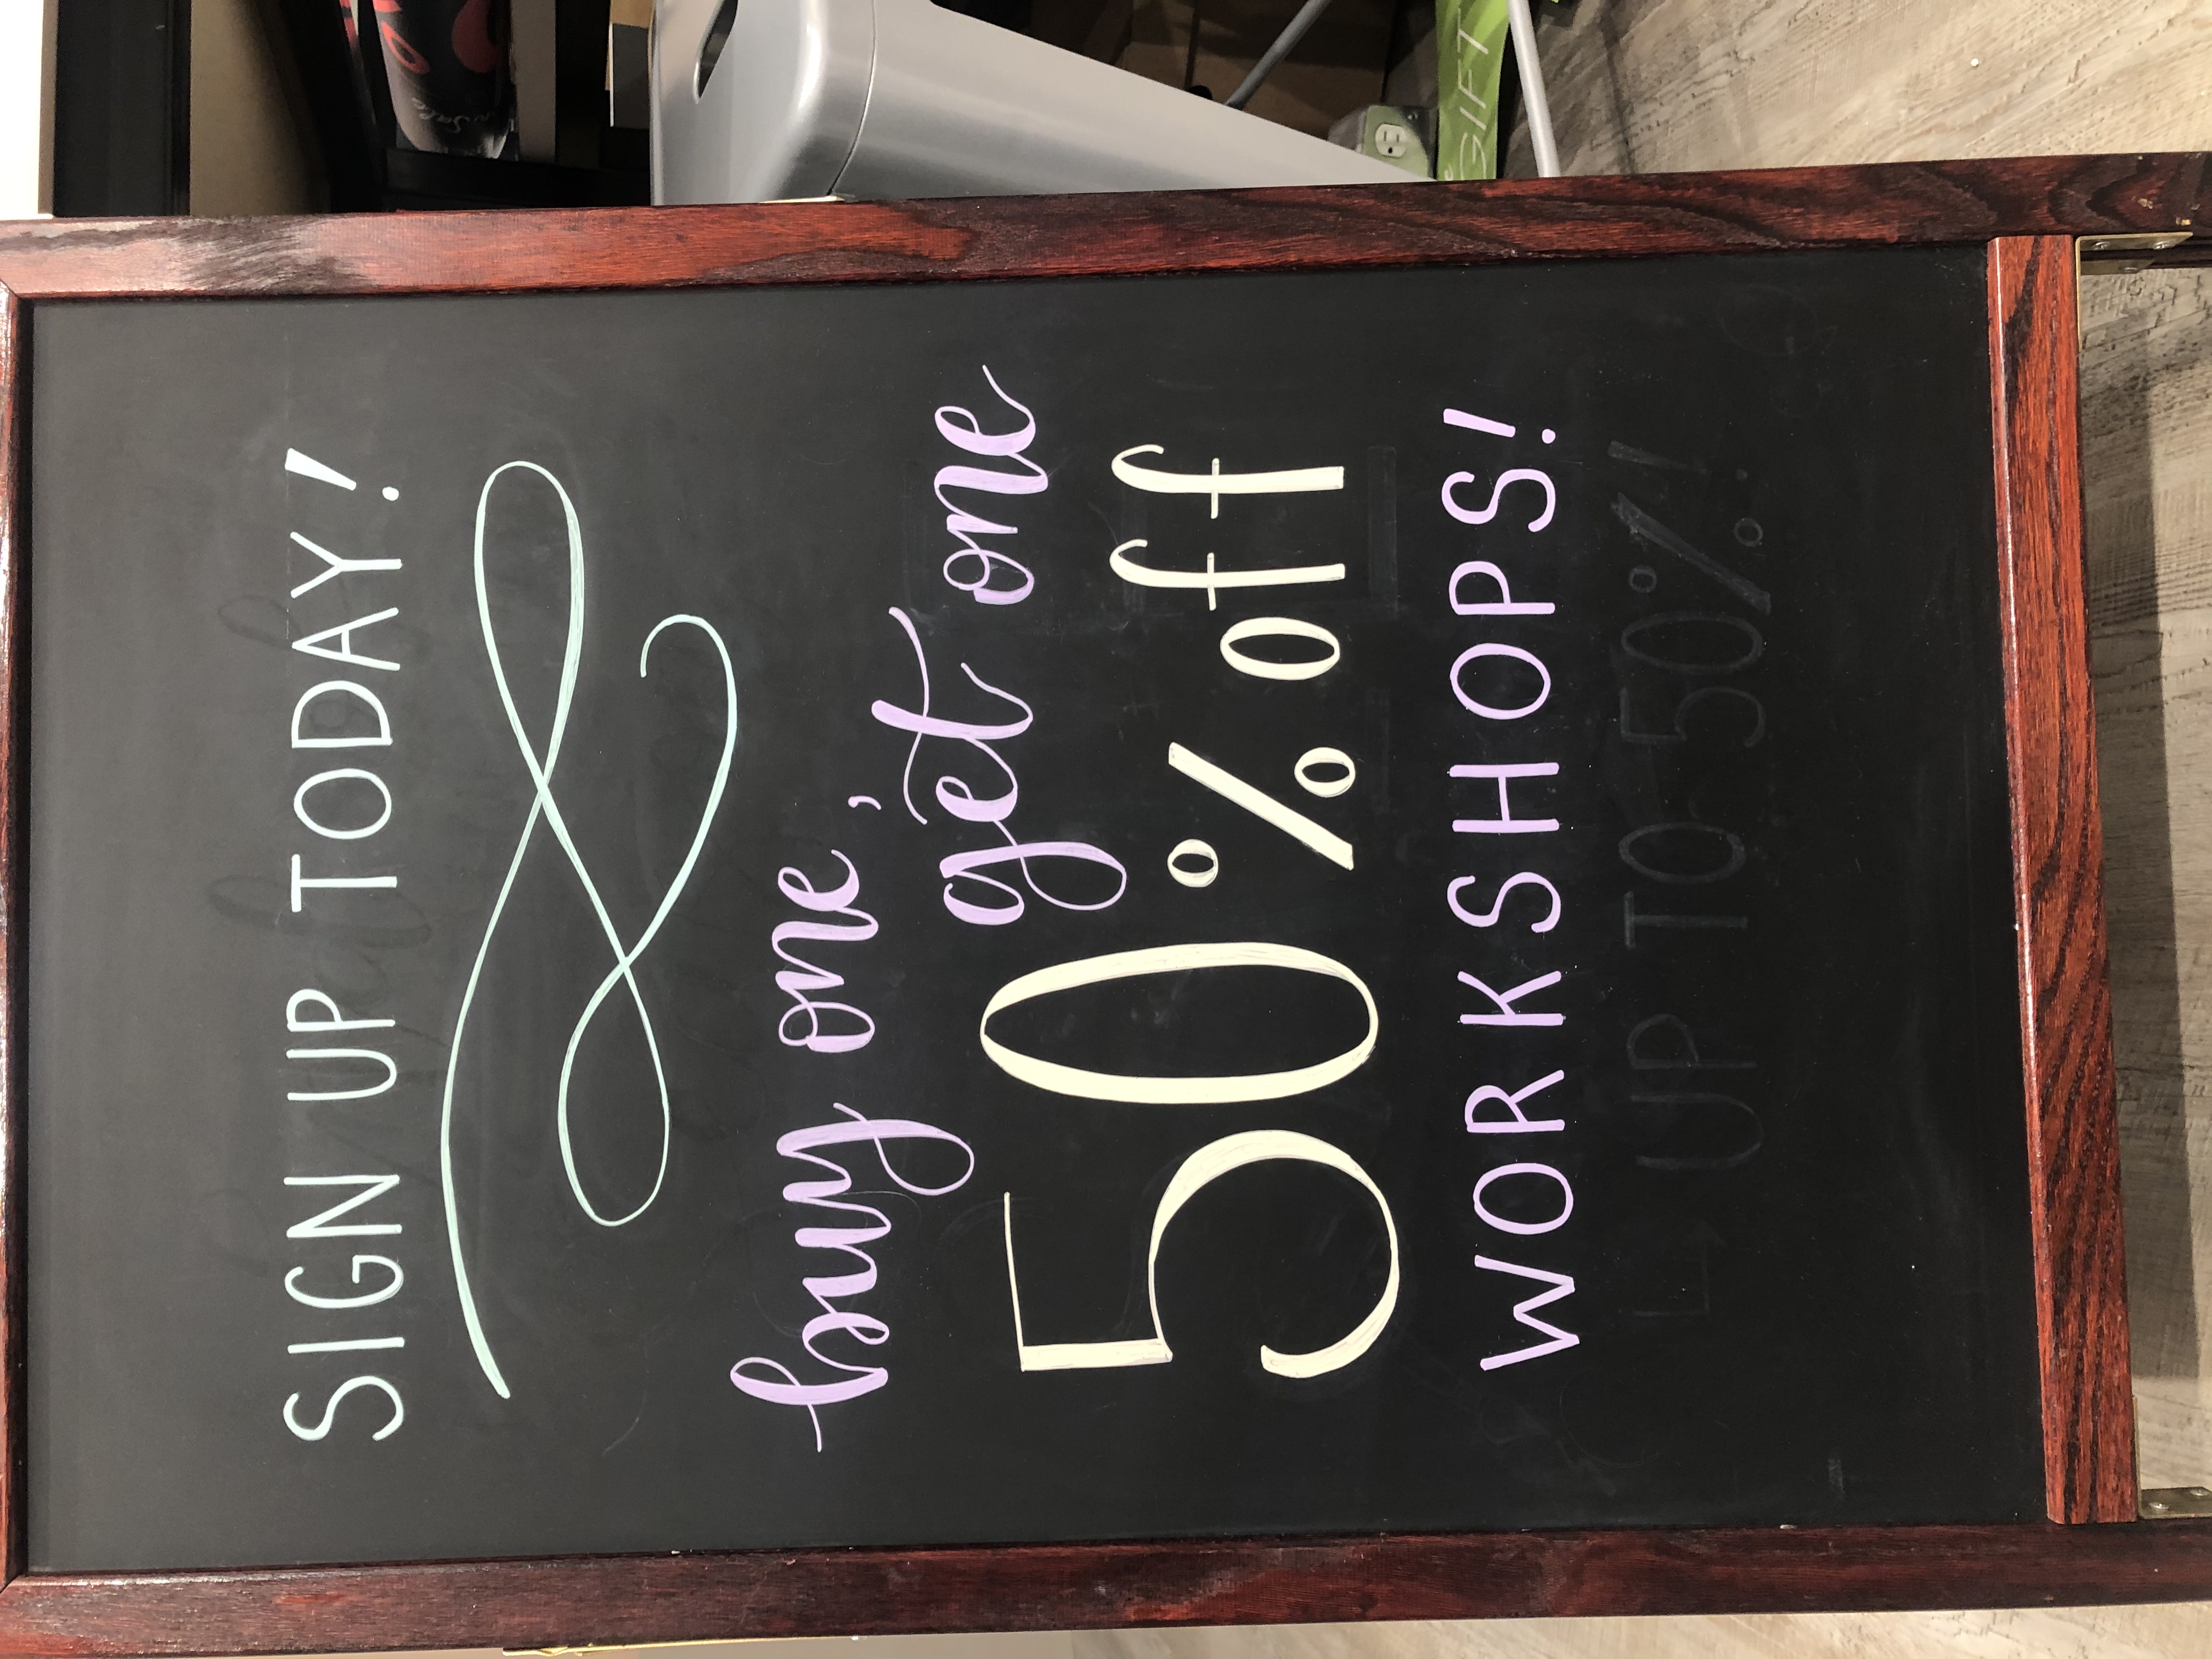 SIGN UP TODAY!
buy one,
get one
50% off
WORKSHOPS!
↳ UP TO 50%!
GIFT